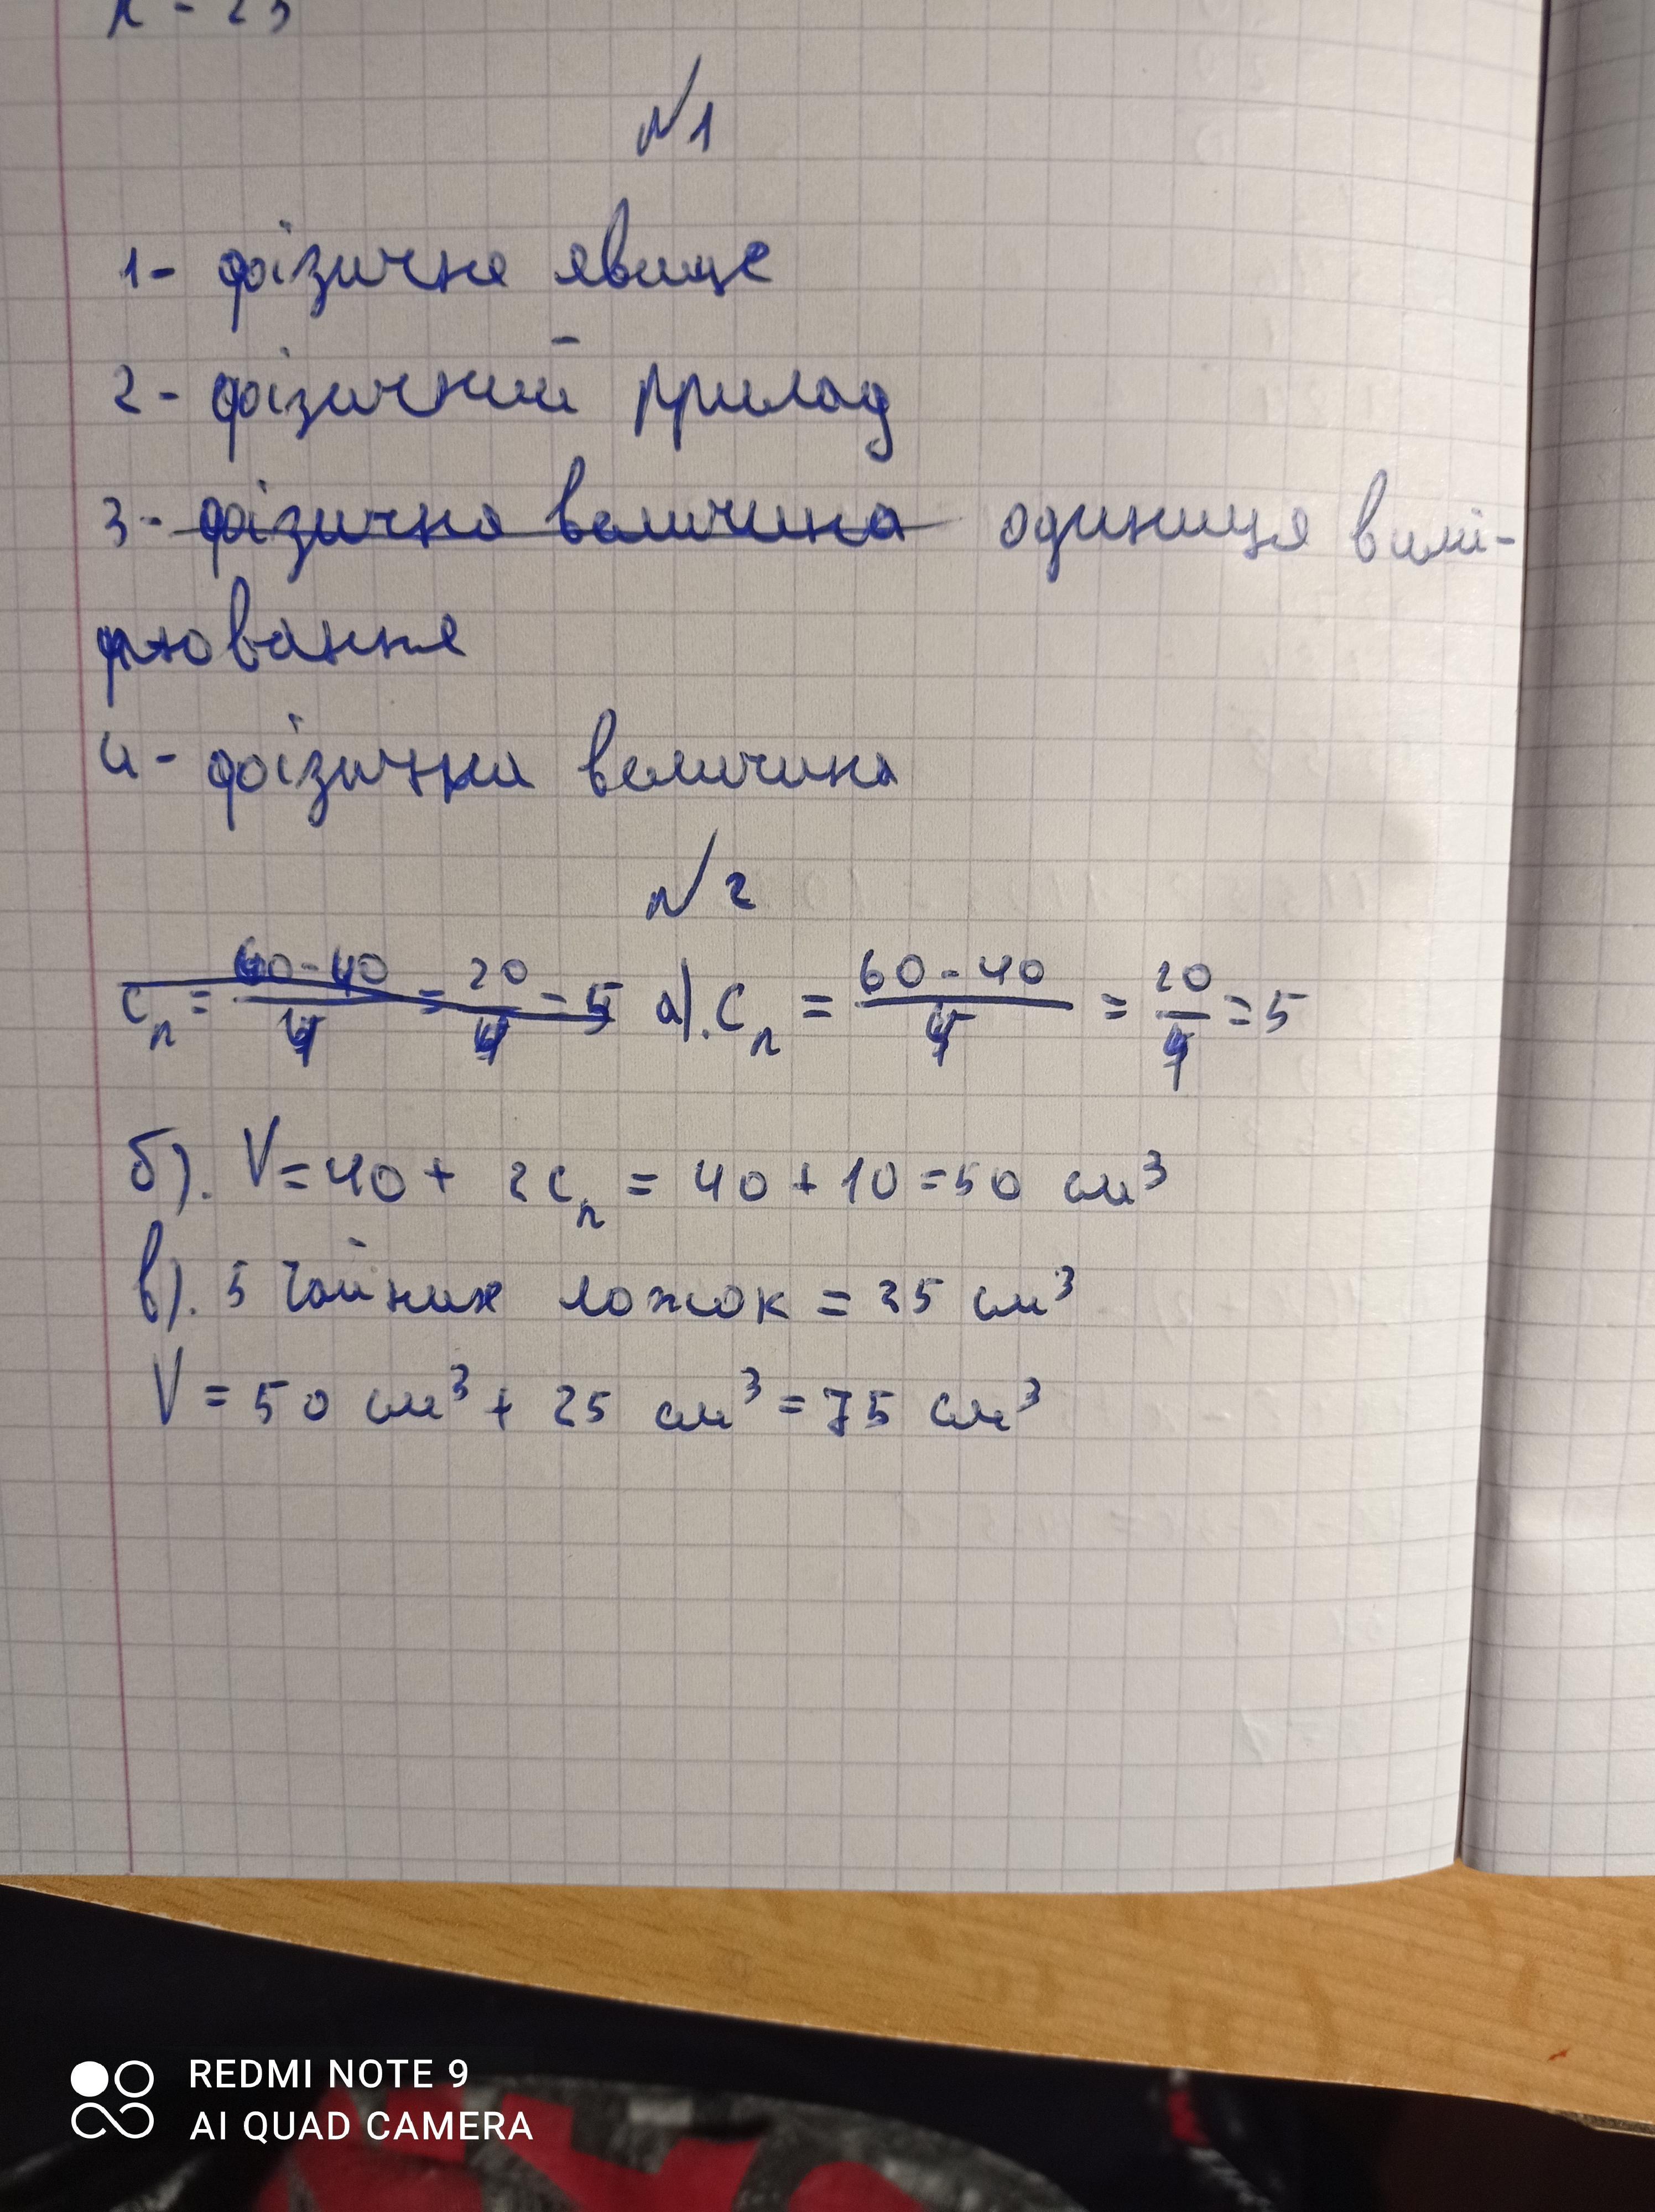 х - 25
№1
1- фізичне явище
2- фізичний прилад
3- фізична величина одиниця вимі-
рювання
4- фізична величина
№2
Cп = 60-40/4 = 20/4 = 5 а). Cп = 60-40/4 = 20/4 = 5
б). V = 40 + 2Cп = 40 + 10 = 50 см³
в). 5 чайних ложок = 25 см³
V = 50 см³ + 25 см³ = 75 см³
REDMI NOTE 9
AI QUAD CAMERA